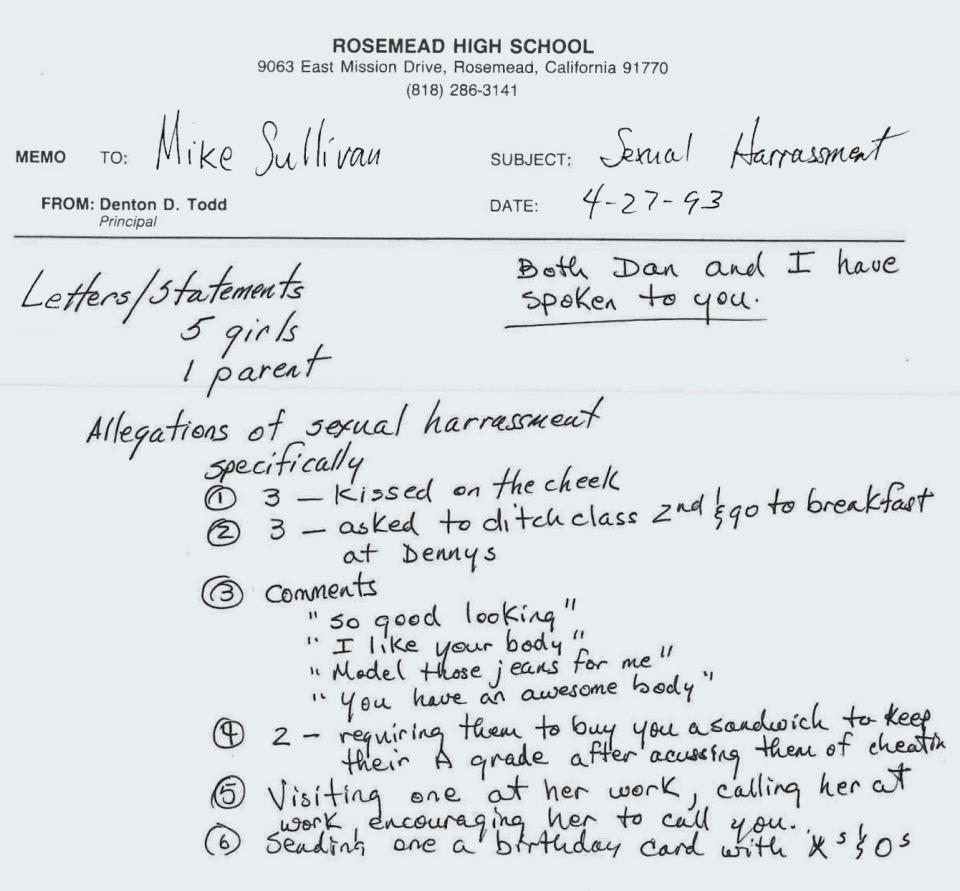 ROSEMEAD HIGH SCHOOL
9063 East Mission Drive, Rosemead, California 91770
(818) 286-3141
MEMO TO: Mike Sullivan
SUBJECT: Sexual Harrassment
FROM: Denton D. Todd
Principal
DATE: 4-27-93
Both Dan and I have
spoken to you.
Letters/Statements
5 girls
1 parent
Allegations of sexual harrassment
specifically
① 3 - Kissed on the cheek
② 3 - asked to ditch class 2nd & go to breakfast
at Dennys
③ Comments
"so good looking"
"I like your body"
"Model those jeans for me"
"You have an awesome body"
④ 2 - requiring them to buy you a sandwich to keep
their A grade after acussing them of cheatin
⑤ Visiting one at her work, calling her at
work encouraging her to call you.
⑥ Sending one a birthday card with Xs & Os